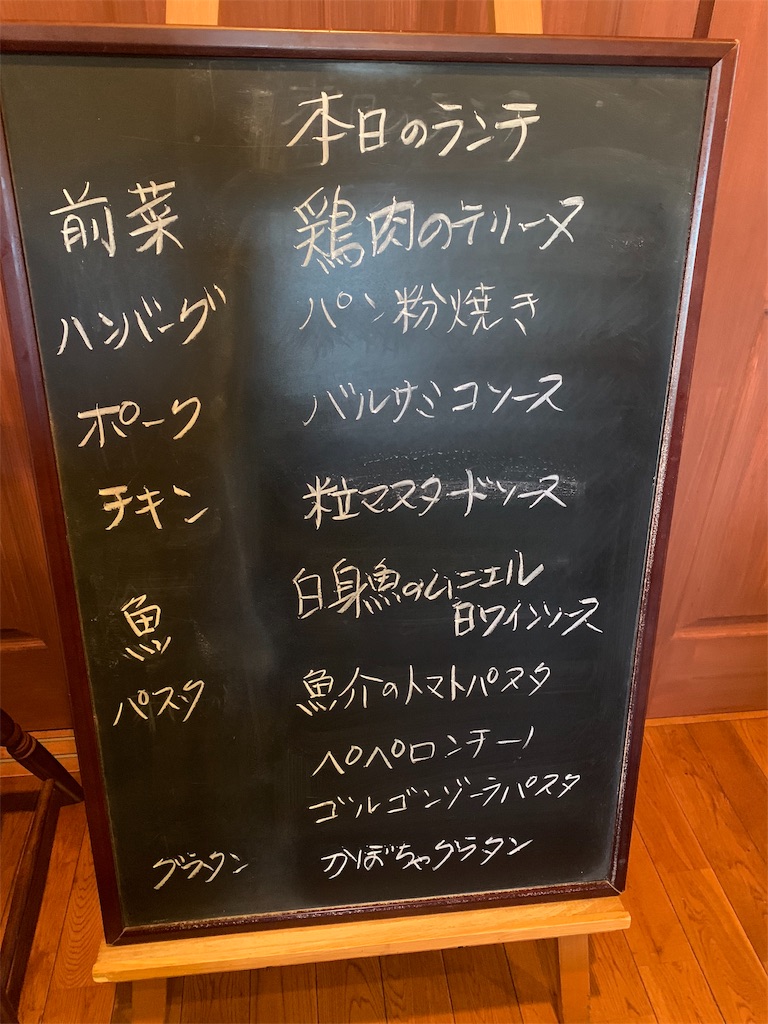 本日のランチ
前菜 鶏肉のテリーヌ
ハンバーグ パン粉焼き
ポーク バルサミコソース
チキン 粒マスタードソース
魚 白身魚のムニエル
白ワインソース
パスタ 魚介のトマトパスタ
ペペロンチーノ
ゴルゴンゾーラパスタ
グラタン かぼちゃグラタン